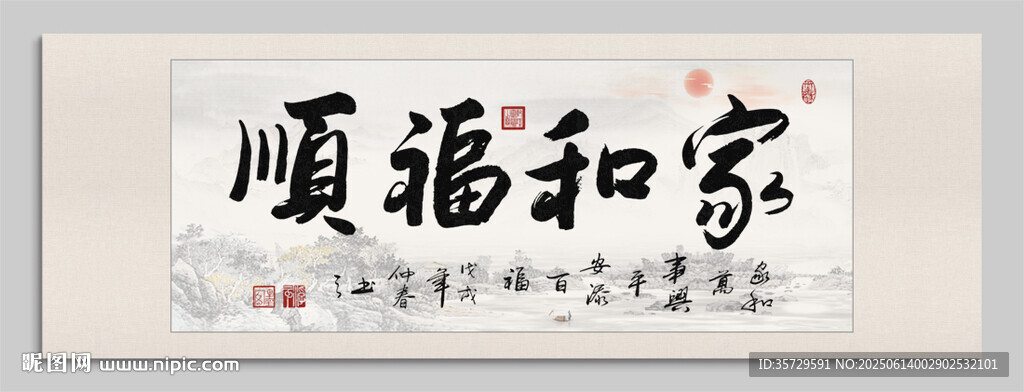 家和福順
家和萬事興平安添百福戊戌年仲春書之
昵图网 www.nipic.com
ID:35729591 NO:20250614002902532101